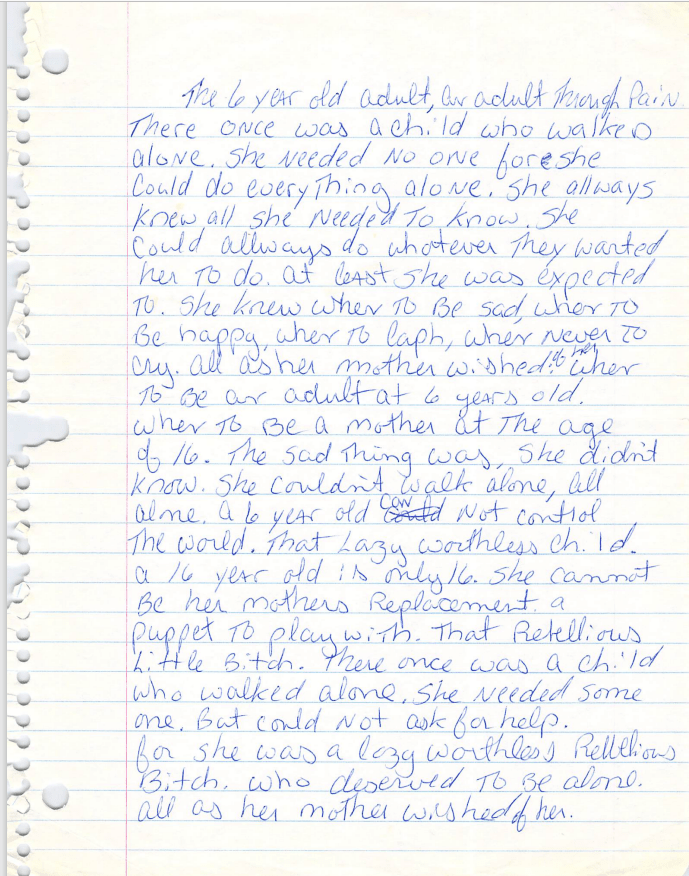 The 6 year old adult, an adult Through Pain.
There once was a child who walked
alone. She needed no one fore she
Could do everyThing alone. She allways
knew all she Needed To know. She
Could allways do whatever They wanted
her To do. at least she was expected
To. She knew when To Be sad, when To
Be happy, when To laph, when never To
cry. all as her mother wished of her. when
To Be an adult at 6 years old.
when To Be a mother at The age
of 16. The sad Thing was, She didn't
know. She couldn't walk alone, all
alone. a 6 year old can could Not control
The world. That Lazy worthless child.
a 16 year old is only 16. She cannot
Be her mothers Replacement. a
puppet To play with. That Rebellious
Little Bitch. There once was a child
who walked alone. She needed some
one. But could Not ask for help.
for she was a lazy worthless Rebellious
Bitch. who deserved To Be alone.
all as her mother wished of her.